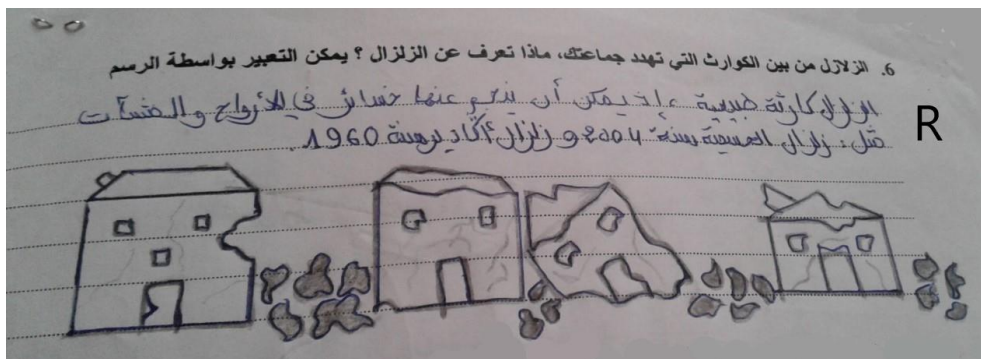 6. الزلازل من بين الكوارث التي تهدد جماعتك، ماذا تعرف عن الزلزال ؟ يمكن التعبير بواسطة الرسم
الزلزال كارثة طبيعية ، إذ يمكن أن ينجم عنها خسائر في الأرواح والمنشآت
مثل : زلزال الحسيمة سنة 2004 و زلزال أكادير سنة 1960.
R